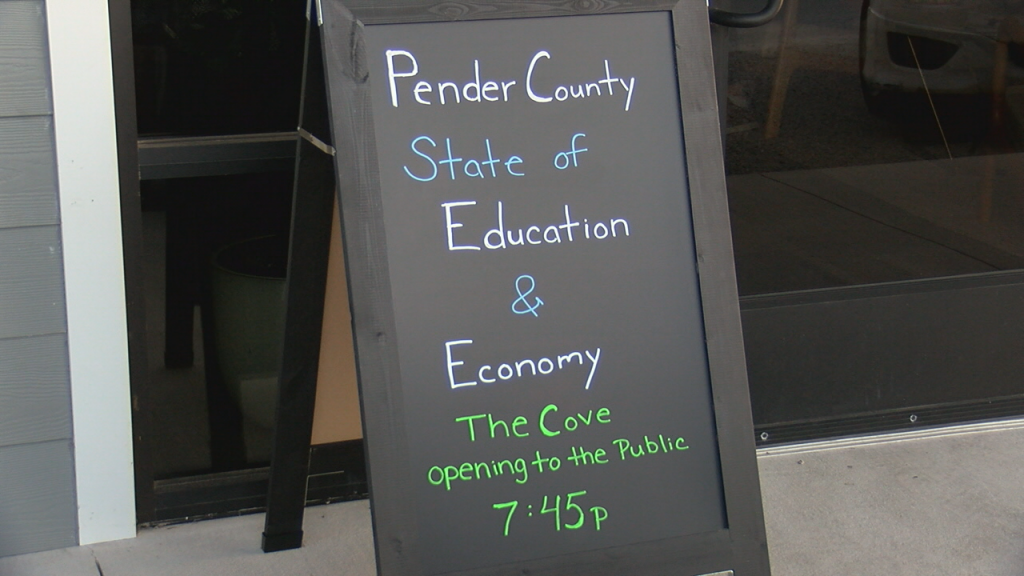 Pender County
State of
Education
&
Economy
The Cove
opening to the Public
7:45p